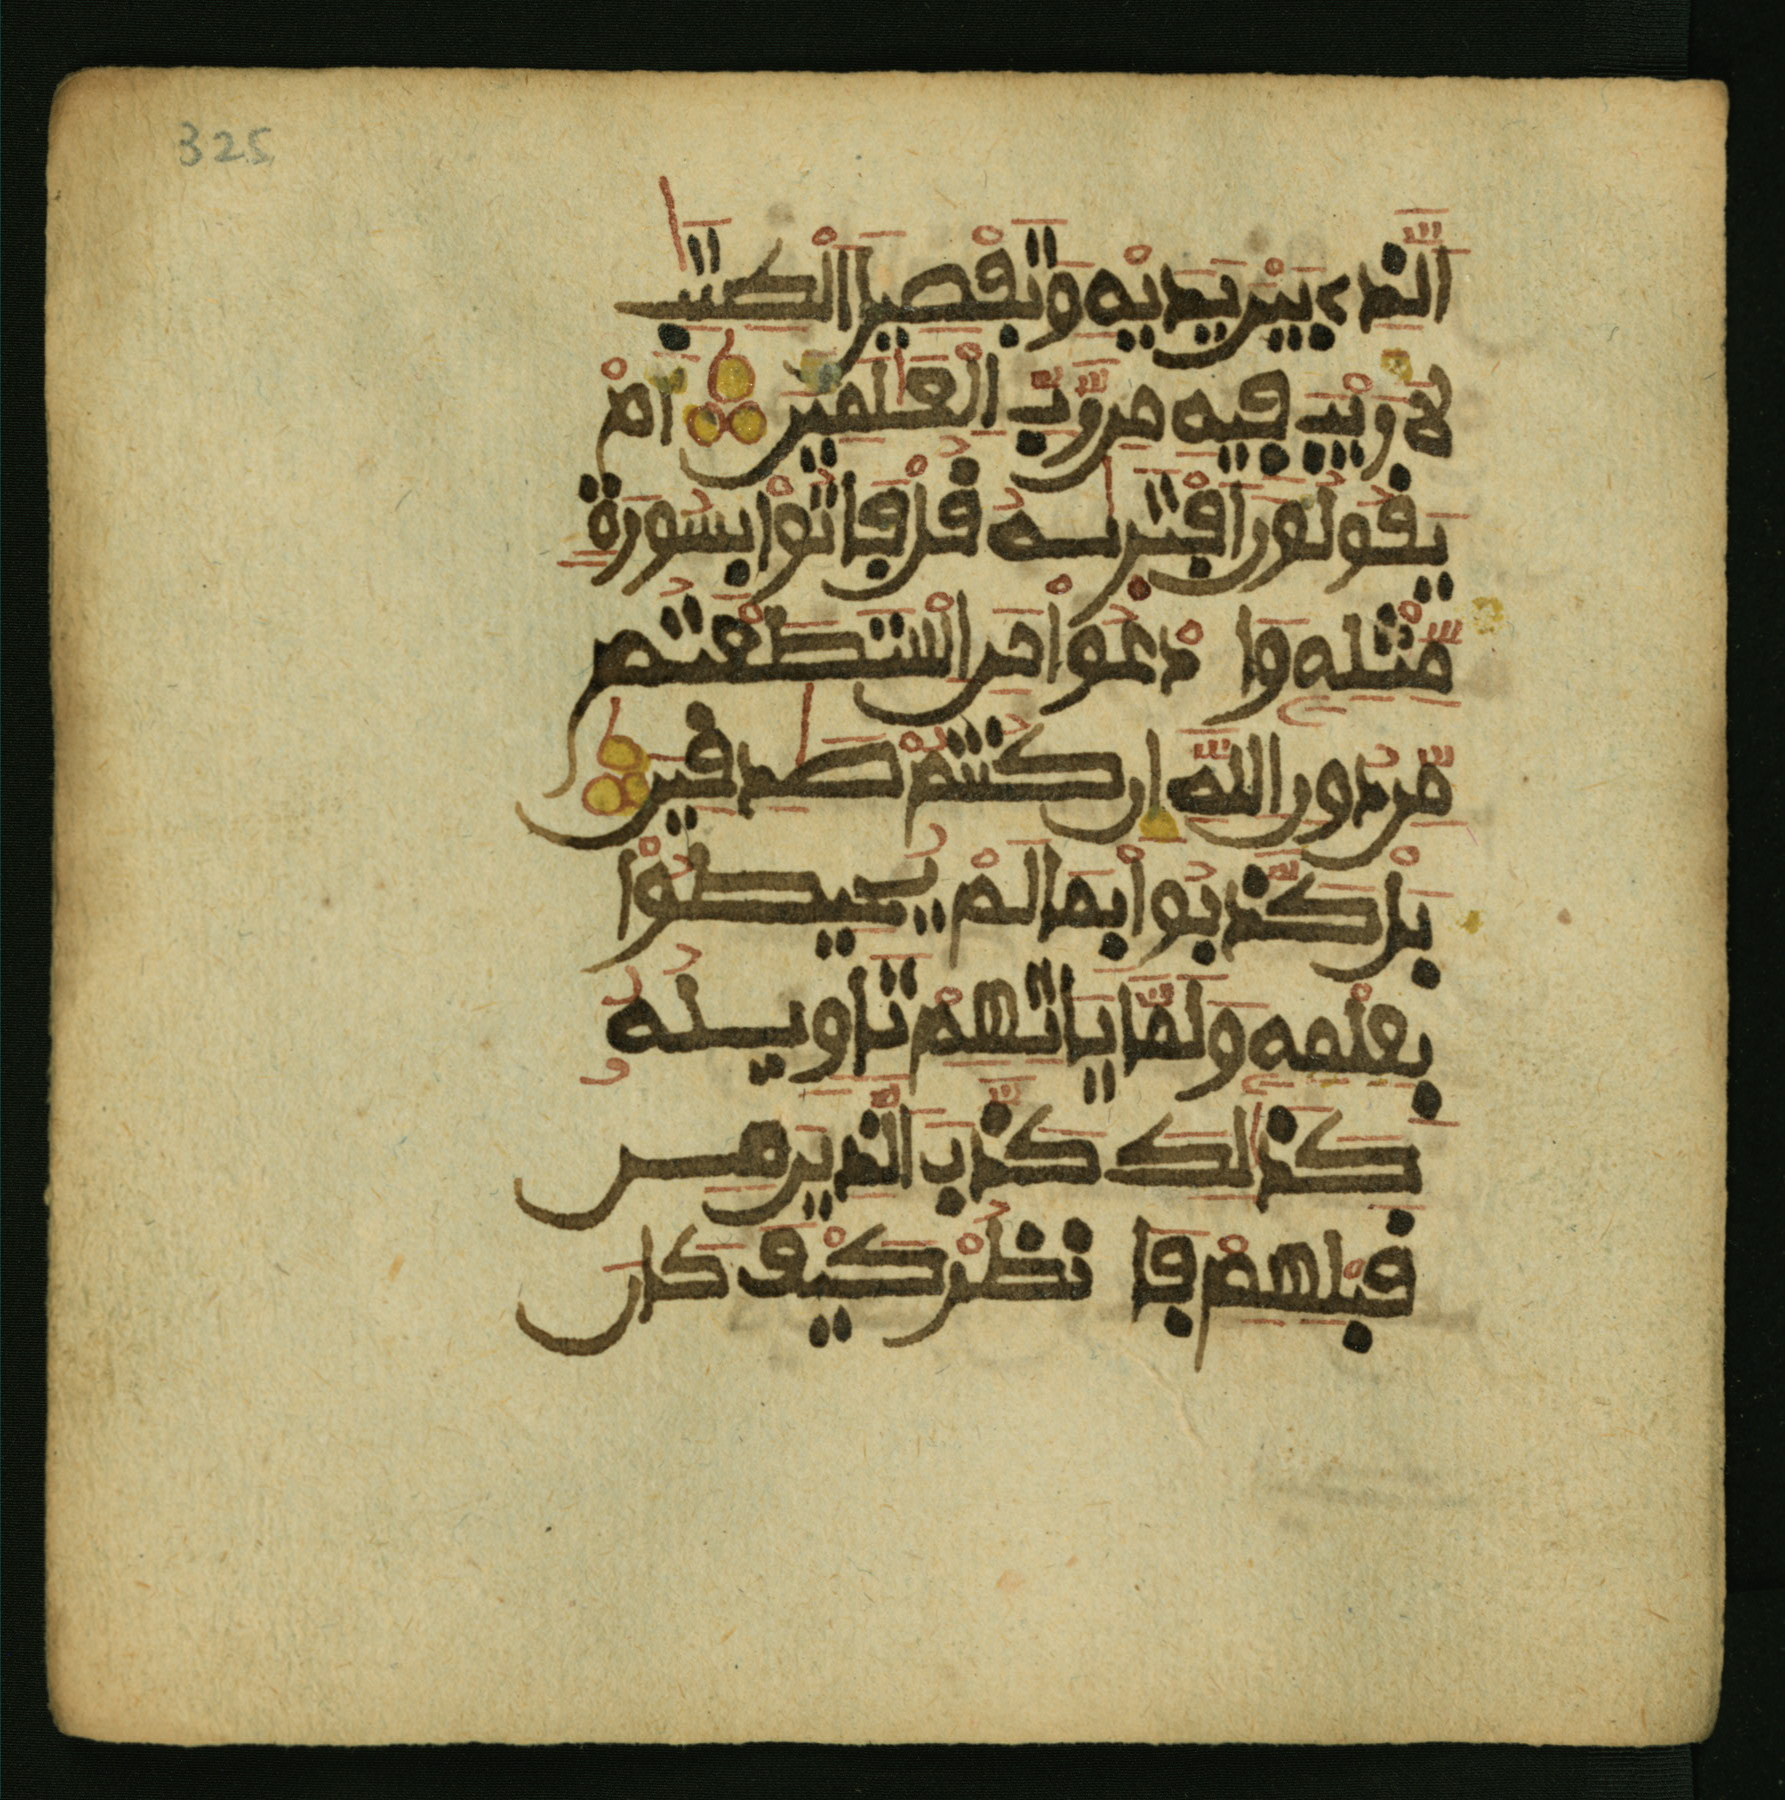 325
الَّذِي بَيْنَ يَدَيْهِ وَتَفْصِيلَ الْكِتَٰبِ
لَا رَيْبَ فِيهِ مِن رَّبِّ الْعَٰلَمِينَ أَمْ
يَقُولُونَ افْتَرَىٰهُ قُلْ فَاتُوْا بِسُورَةٍ
مِّثْلِهِ وَادْعُوْا مَنِ اسْتَطَعْتُم
مِّن دُونِ اللَّهِ إِن كُنتُمْ صَٰدِقِينَ
بَلْ كَذَّبُوْا بِمَا لَمْ يُحِيطُوْا
بِعِلْمِهِ وَلَمَّا يَاتِهِمْ تَاوِيلُهُ
كَذَٰلِكَ كَذَّبَ الَّذِينَ مِن
قَبْلِهِمْ فَانظُرْ كَيْفَ كَانَ